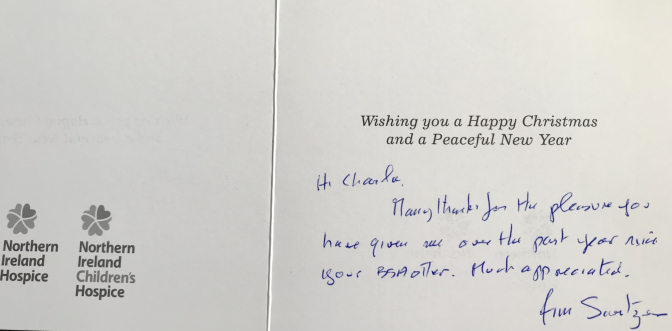 Northern
Ireland
Hospice
Northern
Ireland
Children's
Hospice
Wishing you a Happy Christmas
and a Peaceful New Year
Hi
Many thanks for the pleasure you
have given me over the past year
your. Much appreciated.